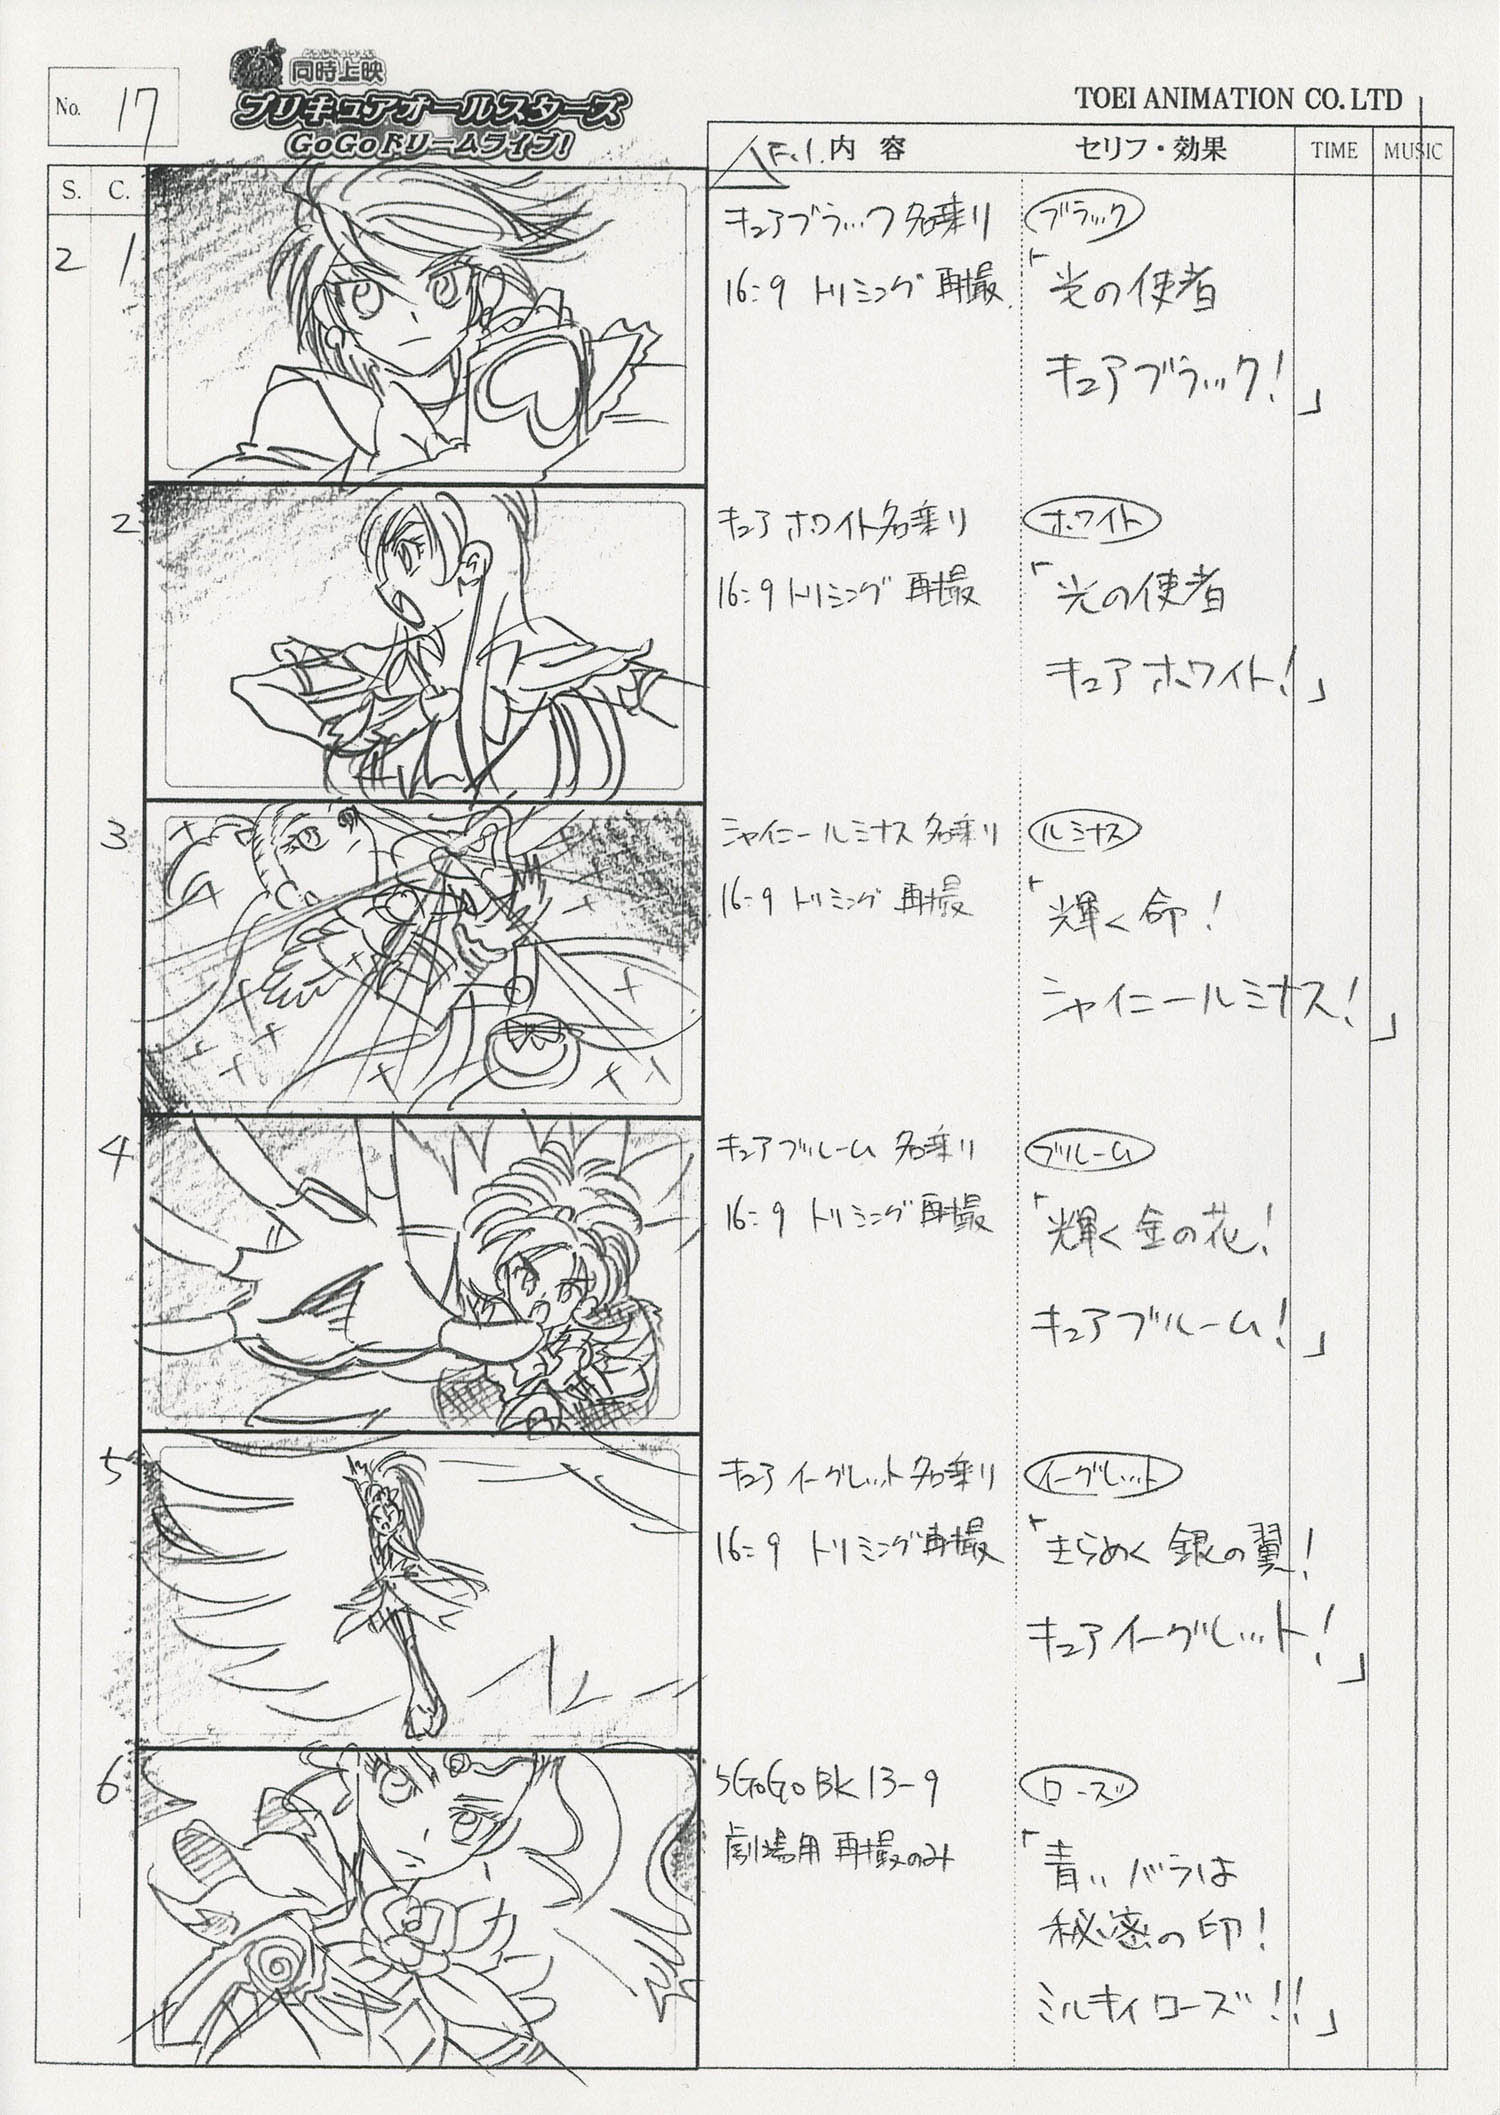 No. 17
同時上映
プリキュアオールスターズ
GoGoドリームライブ!
TOEI ANIMATION CO. LTD
S. C.
F.I.
内容
セリフ・効果
TIME
MUSIC
2 1
キュアブラック名乗り
16:9 トリミング 再撮
ブラック
「光の使者
キュアブラック!」
2
キュアホワイト名乗り
16:9 トリミング 再撮
ホワイト
「光の使者
キュアホワイト!」
3
シャイニールミナス名乗り
16:9 トリミング 再撮
ルミナス
「輝く命!
シャイニールミナス!」
4
キュアブルーム 名乗り
16:9 トリミング再撮
ブルーム
「輝く金の花!
キュアブルーム!」
5
キュアイーグレット名乗り
16:9 トリミング再撮
イーグレット
「きらめく銀の翼!
キュアイーグレット!」
6
5GoGo BK 13-9
劇場用 再撮のみ
ローズ
「青いバラは
秘密の印!
ミルキィローズ!!」